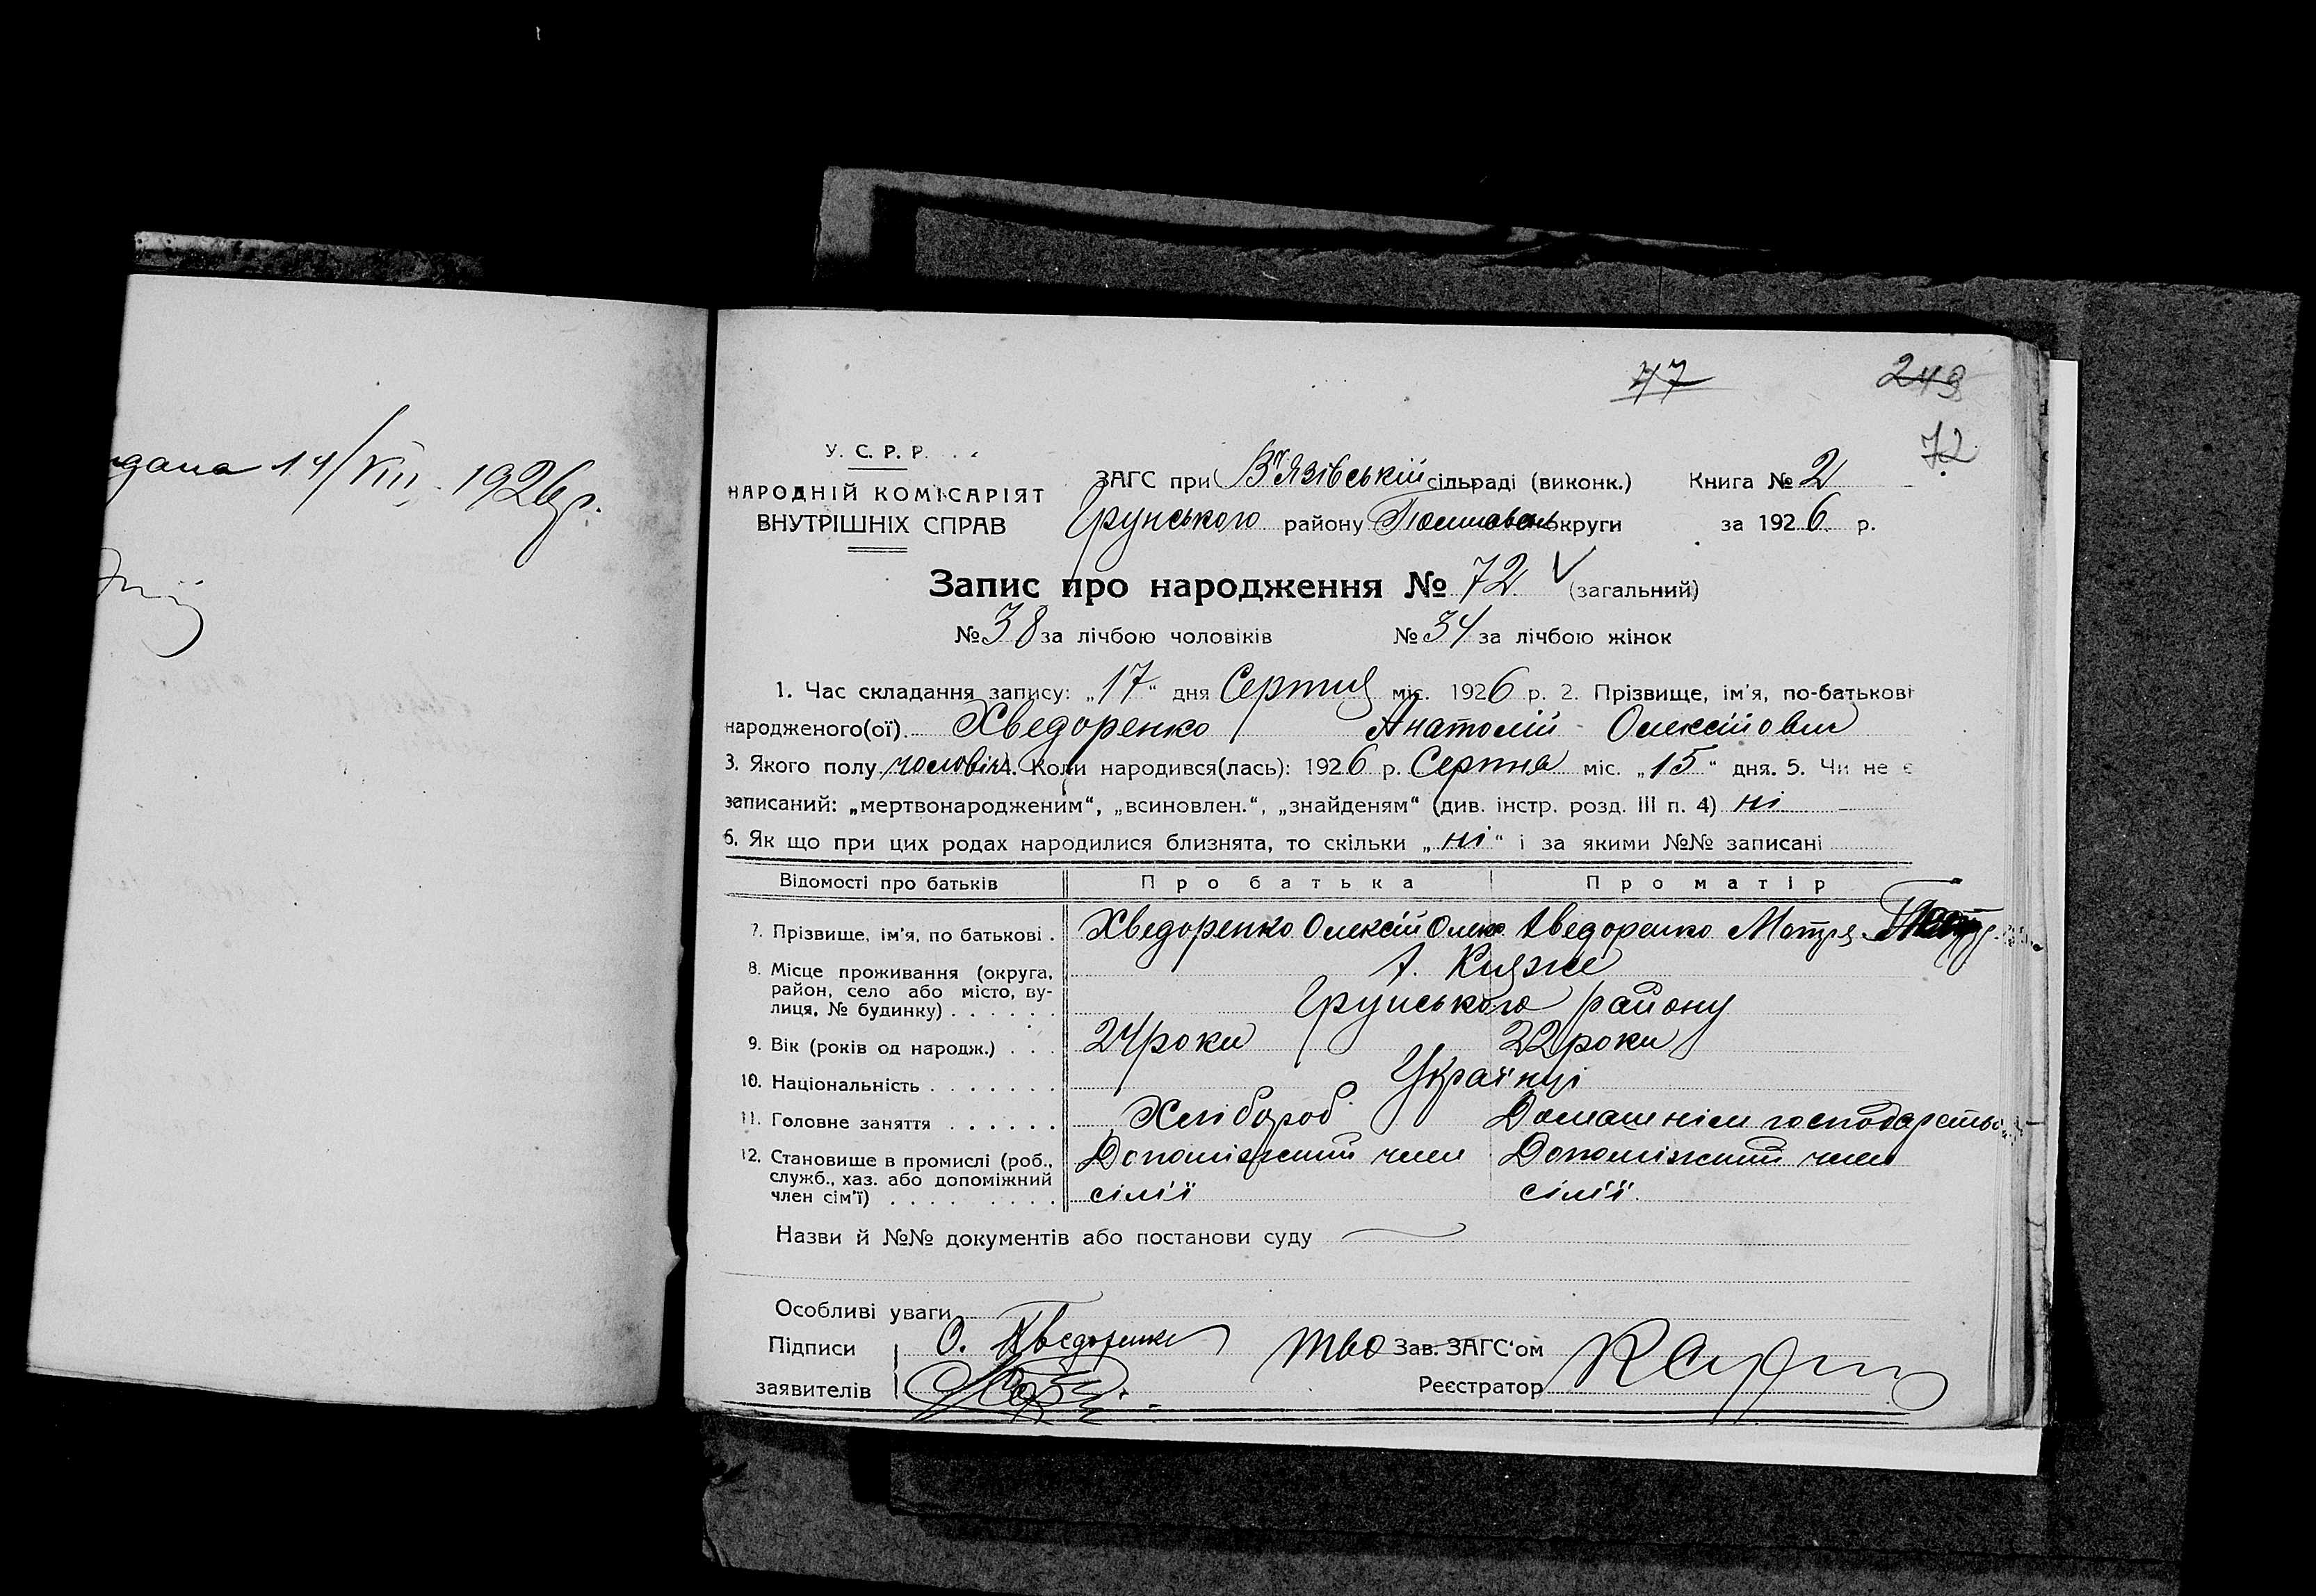 14/VIII 1926 р.
47
249
72
У. С. Р. Р.
НАРОДНІЙ КОМІСАРІЯТ
ВНУТРІШНІХ СПРАВ
ЗАГС при В'язівській сільраді (виконк.) Книга № 2
Грунського району Полтавськ округи за 1926 р.
Запис про народження № 72 (загальний)
№ 38 за лічбою чоловіків № 34 за лічбою жінок
1. Час складання запису: „17“ дня Серпня міс. 1926 р. 2. Прізвище, ім'я, по-батькові
народженого(ої) Хведоренко Анатолій Олексійович
3. Якого полу чоловіч. 4. Коли народився(лась): 1926 р. Серпня міс. „15“ дня. 5. Чи не є
записаний: „мертвонародженим“, „всиновлен.“, „знайденям“ (див. інстр. розд. III п. 4) ні
6. Як що при цих родах народилися близнята, то скільки „ні“ і за якими №№ записані
Відомості про батьків Про батька Про матір
7. Прізвище, ім'я, по батькові . Хведоренко Олексій Олек Хведоренко Мотря
8. Місце проживання (округа, район, село або місто, вулиця, № будинку) . . . . . . х. Княже
Грунського району
9. Вік (років од народж.) . . . 24 роки 22 роки
10. Національність . . . . . . . Українці
11. Головне заняття . . . . . . Хлібороб Домашнім господарством
12. Становище в промислі (роб., Допоміжний член Допоміжний член
служб., хаз. або допоміжний
член сім'ї) . . . . . . . . сім'ї сім'ї
Назви й №№ документів або постанови суду
Особливі уваги
Підписи О. Хведоренко тво Зав. ЗАГС'ом
заявителів Реєстратор